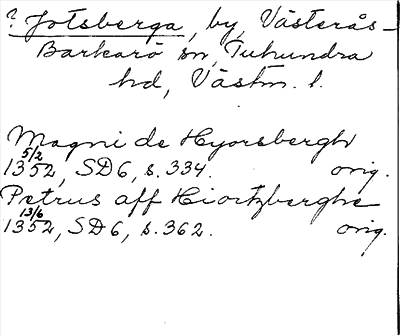 ? Jotsberga, by, Västerås-
Barkarö sn, Tuhundra
hd, Västm. l.
Magni de Hyorsbergh
5/2
1352, SD6, s. 334. orig.
Petrus aff Hiortzberghe
13/6
1352, SD6, s. 362. orig.